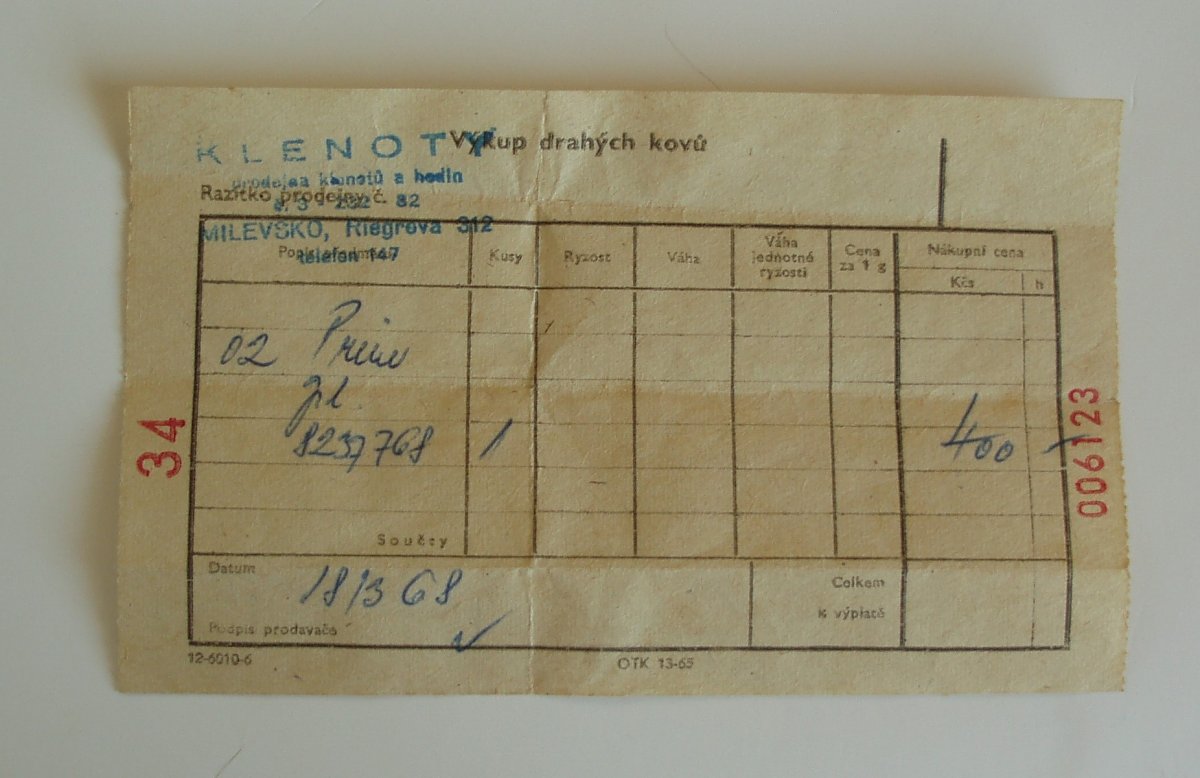 KLENOTY
Výkup drahých kovů
prodejna klenotů a hodin
Razítko prodejny č. 82
MILEVSKO, Riegrova 312
telefon 747
Popis předmětu
Kusy
Ryzost
Váha
Váha jednotné ryzosti
Cena za 1 g
Nákupní cena
Kčs
h
02 Prim
8237768 1 400 –
34
006123
Součty
Datum
18/3 68
Celkem
k výplatě
Podpis prodavače
12-6010-6
OTK 13-65